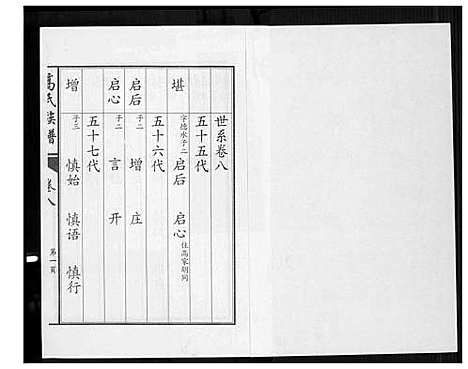 世系卷八
五十五代
堪 字德水子二 启后 启心 住高家胡同
五十六代
启后 子二 增 庄
启心 子二 言 开
五十七代
增 子三 慎始 慎语 慎行
高氏族谱 卷八 第一页